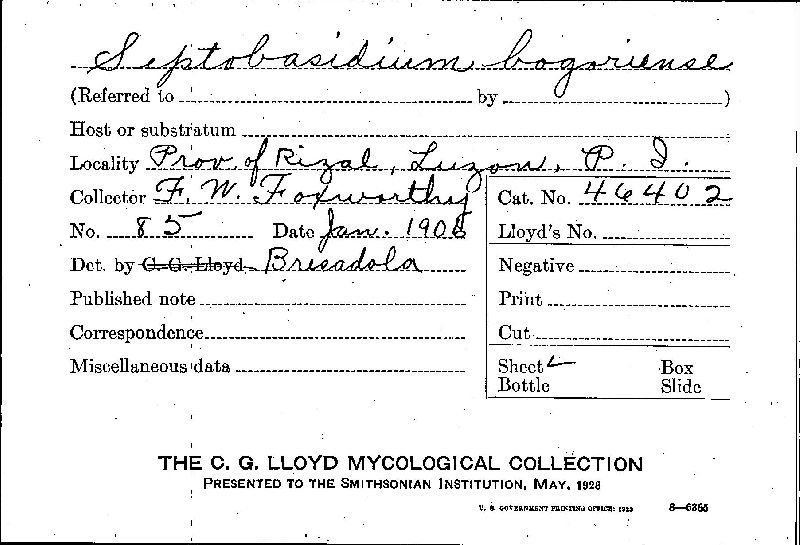 Septobasidium bogoriense
(Referred to by )
Host or substratum
Locality Prov. of Rizal, Luzon, P. I.
Collector F. W. Foxworthy
No. 85 Date Jan. 1906
Det. by C. G. Lloyd Bresadola
Published note
Correspondence
Miscellaneous data
Cat. No. 46402
Lloyd's No.
Negative
Print
Cut
Sheet ✓ Box
Bottle Slide
THE C. G. LLOYD MYCOLOGICAL COLLECTION
PRESENTED TO THE SMITHSONIAN INSTITUTION, MAY, 1928
U. S. GOVERNMENT PRINTING OFFICE:
8—6365